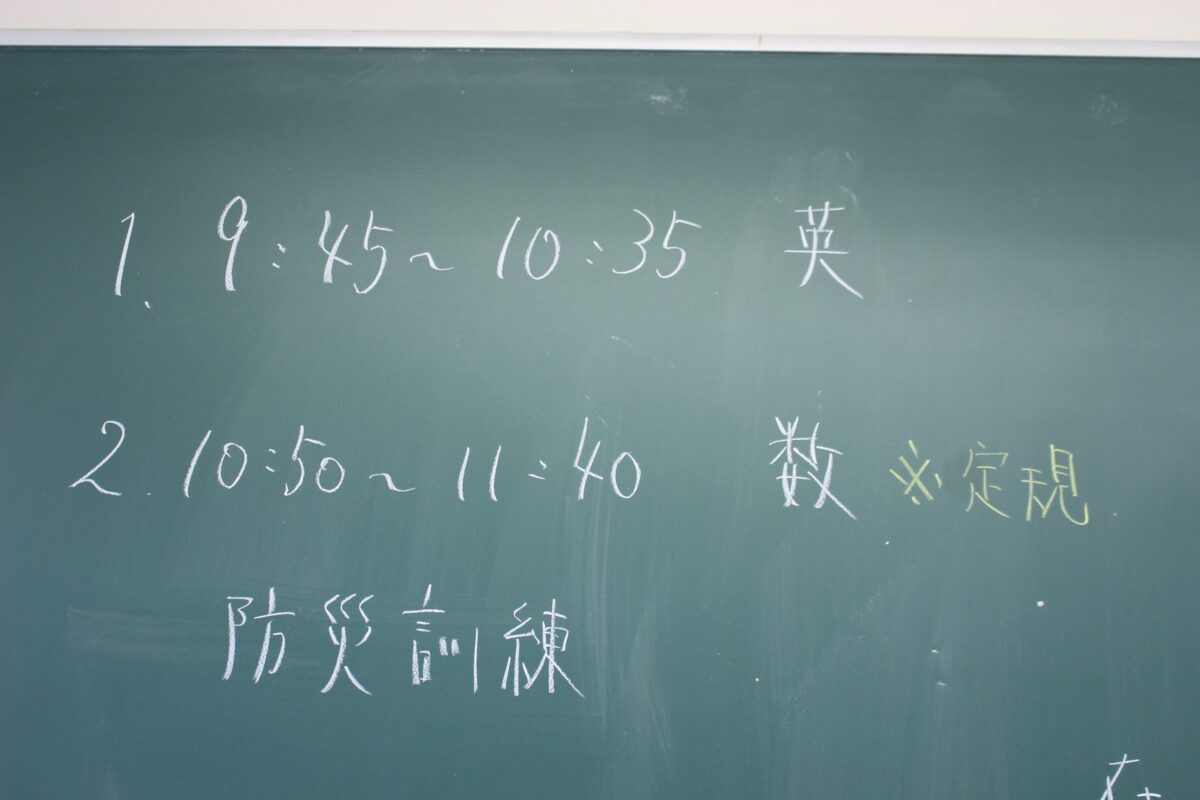 1. 9:45~10:35 英
2. 10:50~11:40 数 ※定規
防災訓練